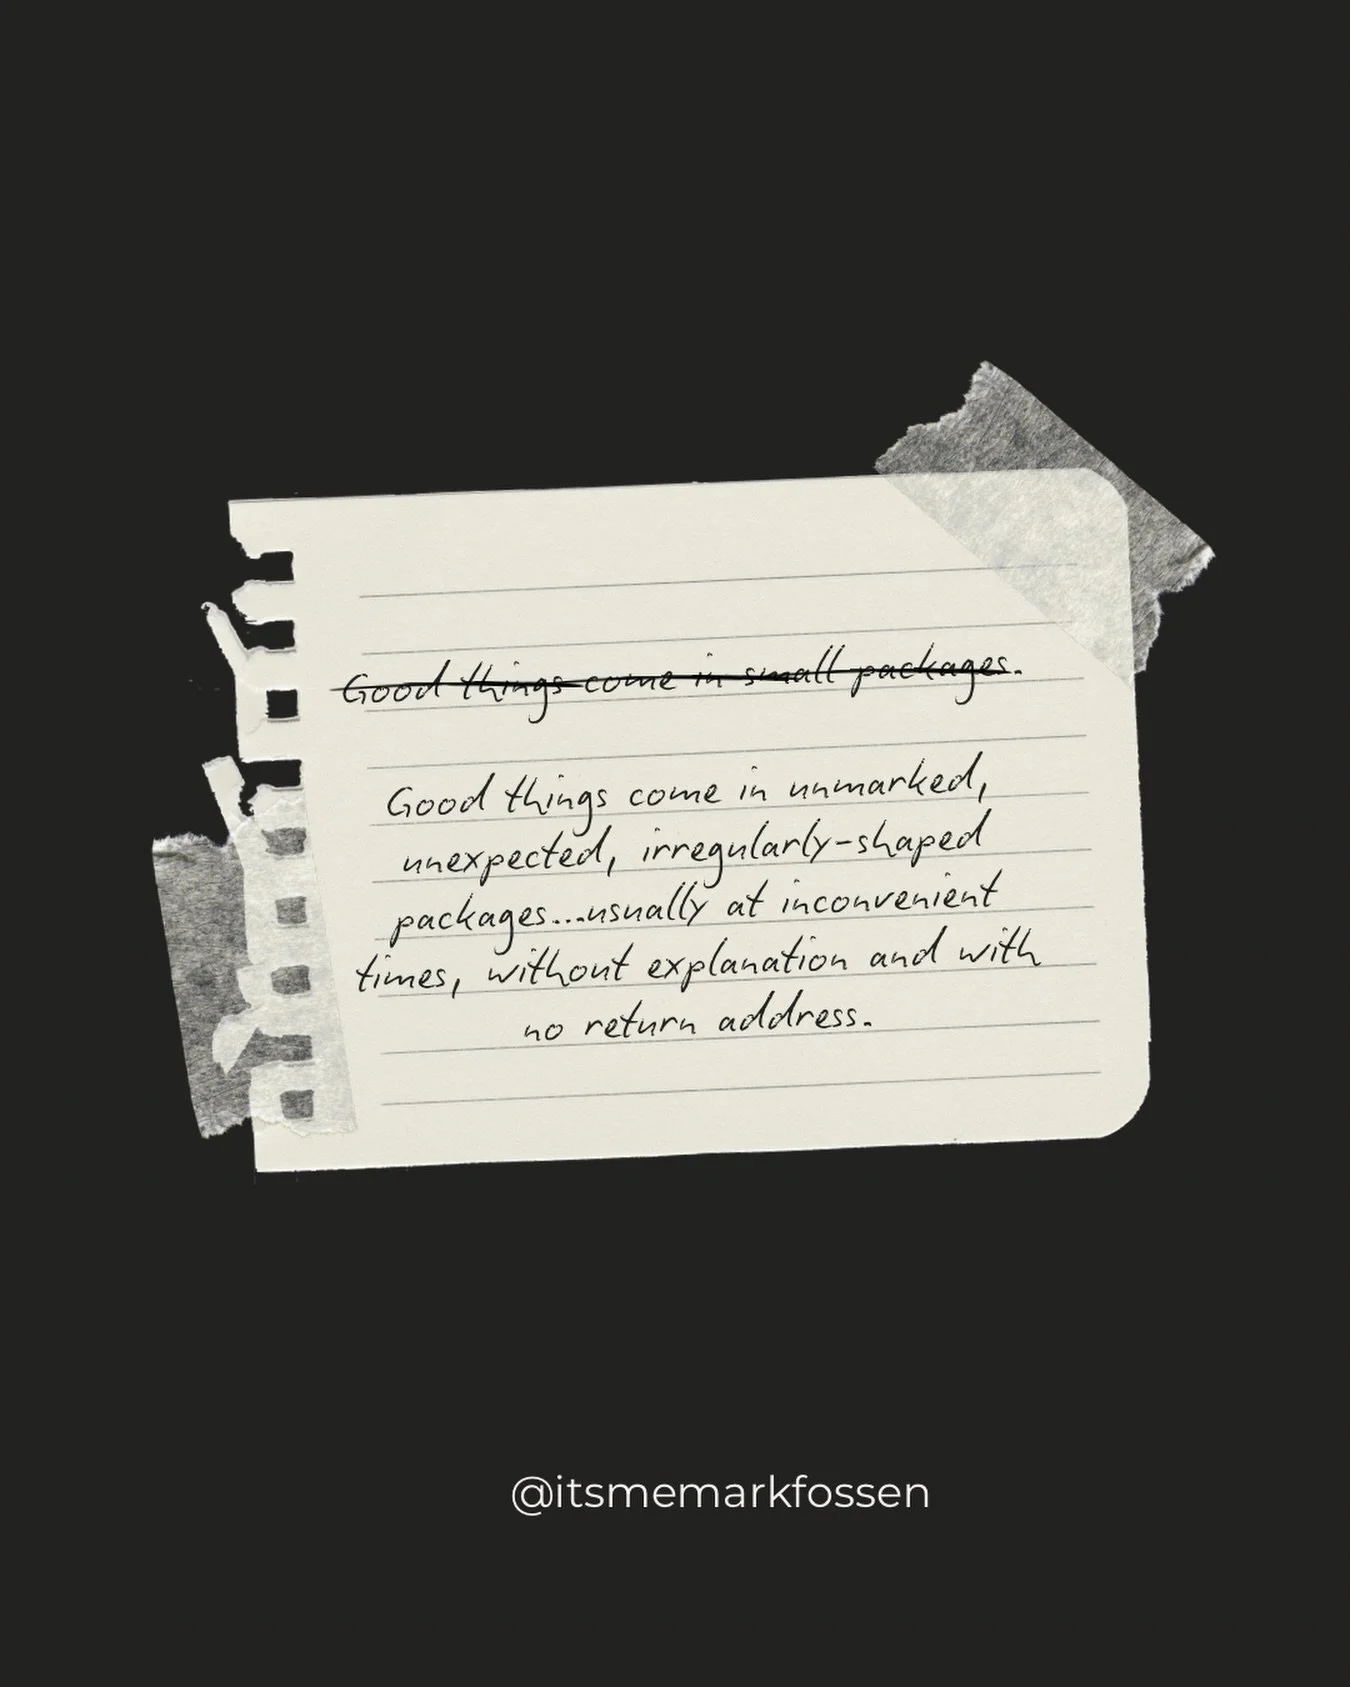 Good things come in small packages.
Good things come in unmarked,
unexpected, irregularly-shaped
packages...usually at inconvenient
times, without explanation and with
no return address.
@itsmemarkfossen